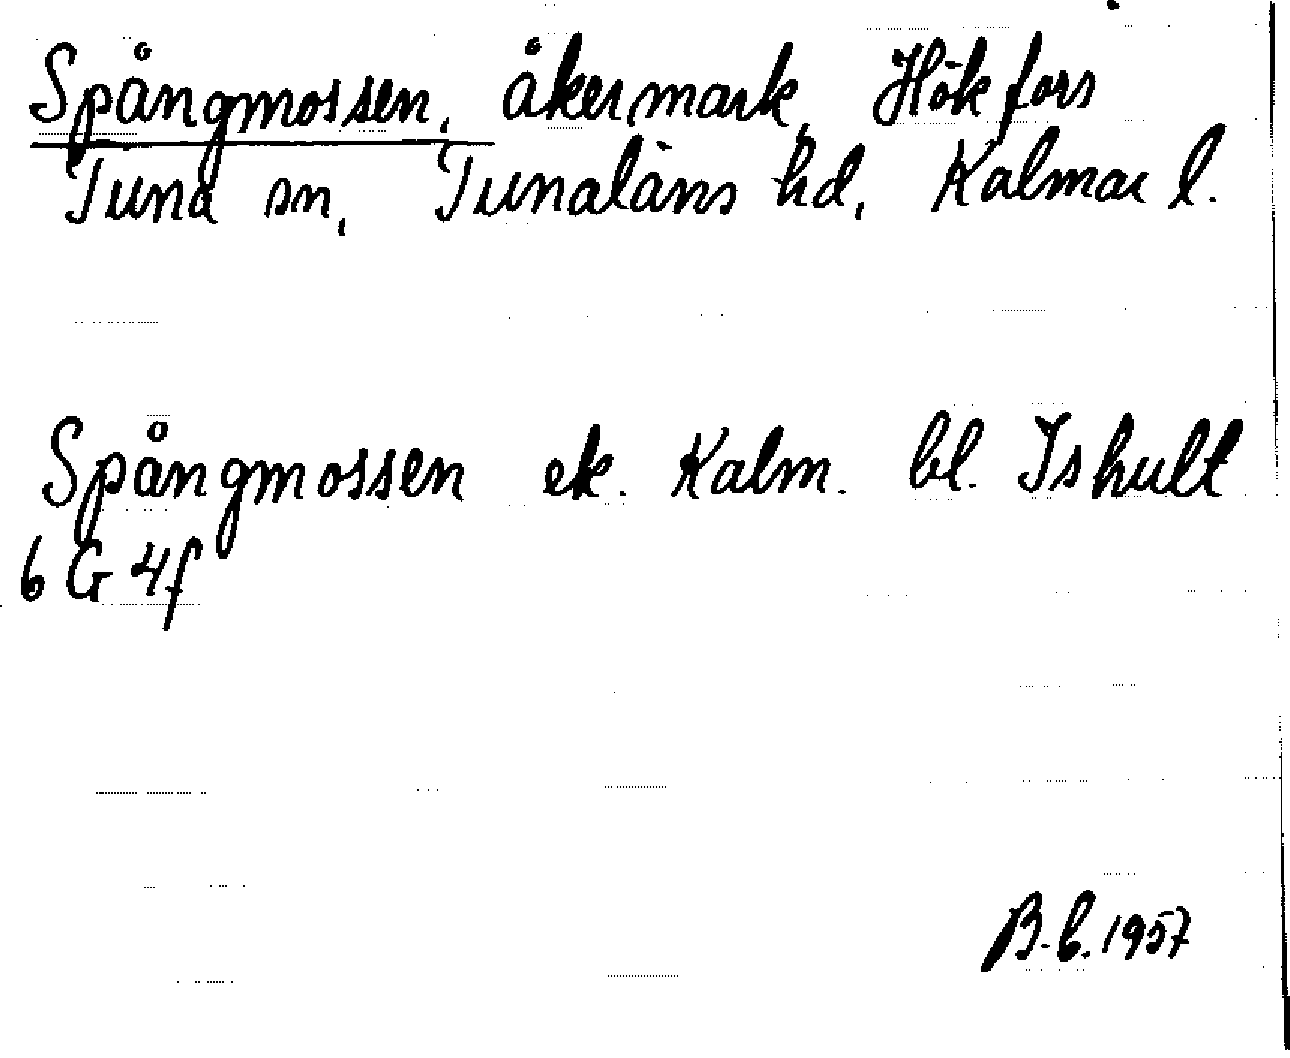 Spångmossen, åkermark, Hökfors
Tuna sn, Tunaläns hd, Kalmar l.
Spångmossen ek. Kalm. bl. Ishult
6 G 4f
B-b. 1957